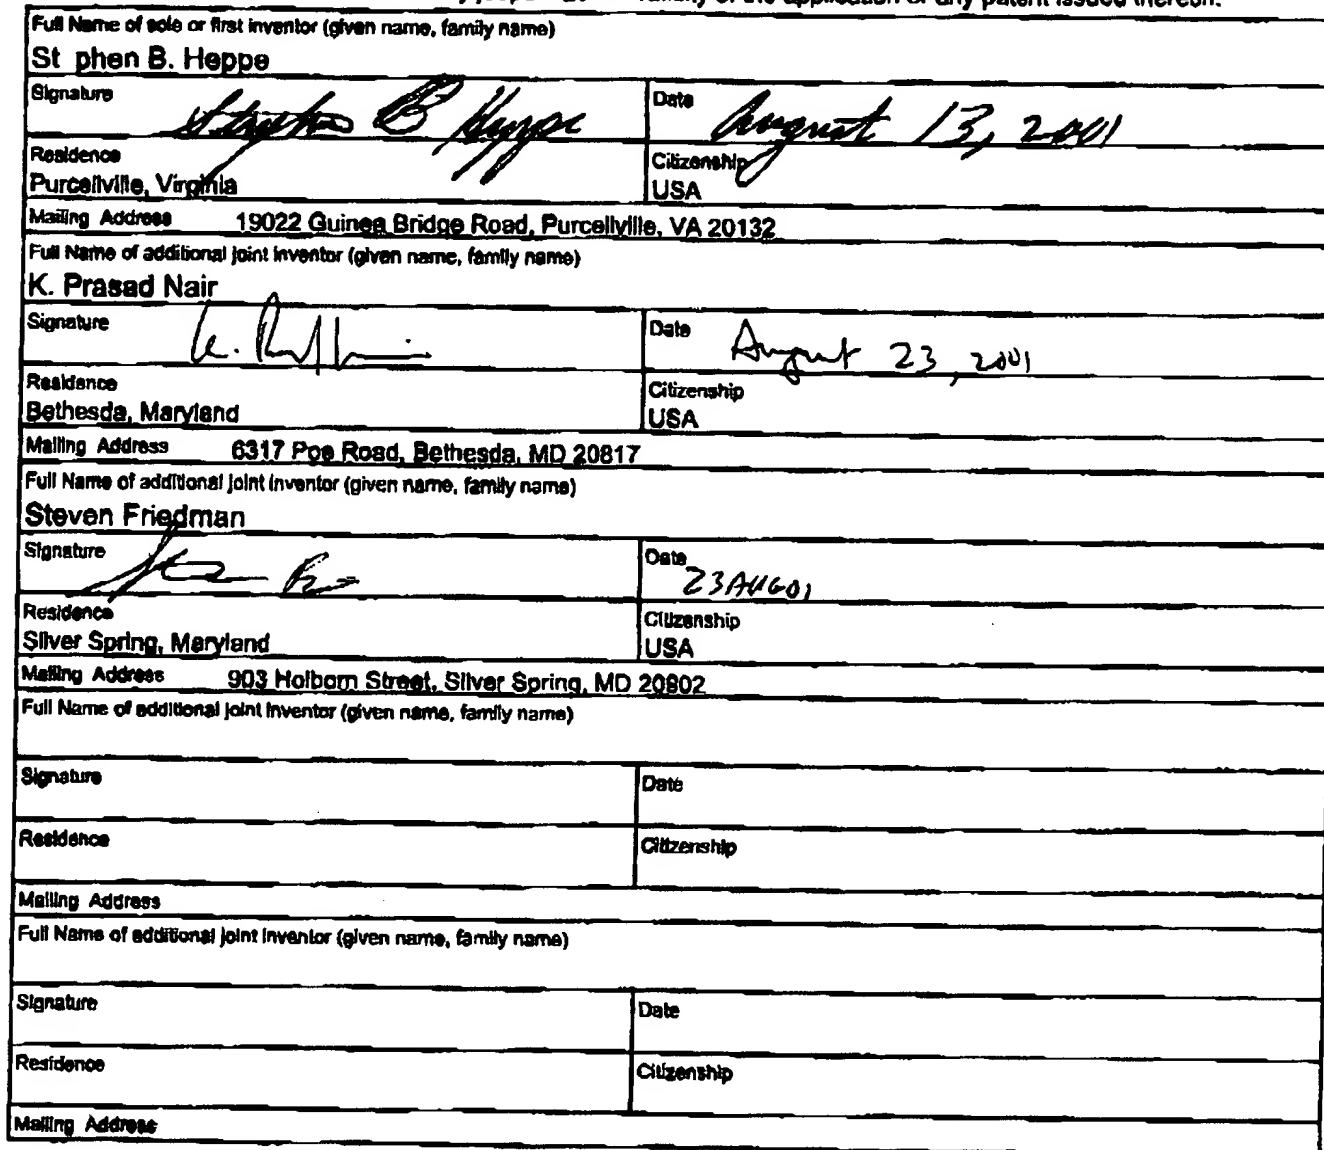 of the application or any patent issued thereon.
Full Name of sole or first inventor (given name, family name)
St phen B. Heppe
Signature Stephen B Heppe Date August 13, 2001
Residence Citizenship
Purcellville, Virginia USA
Mailing Address 19022 Guinea Bridge Road, Purcellville, VA 20132
Full Name of additional joint inventor (given name, family name)
K. Prasad Nair
Signature Date August 23, 2001
Residence Citizenship
Bethesda, Maryland USA
Mailing Address 6317 Poe Road, Bethesda, MD 20817
Full Name of additional joint inventor (given name, family name)
Steven Friedman
Signature Date 23AUG01
Residence Citizenship
Silver Spring, Maryland USA
Mailing Address 903 Holborn Street, Silver Spring, MD 20902
Full Name of additional joint inventor (given name, family name)
Signature Date
Residence Citizenship
Mailing Address
Full Name of additional joint inventor (given name, family name)
Signature Date
Residence Citizenship
Mailing Address